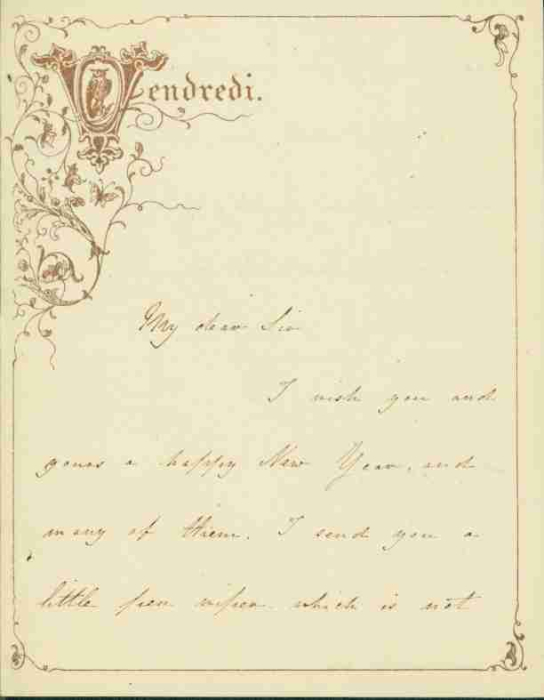 Vendredi.
My dear Sir
I wish you and
yours a happy New Year, and
many of them. I send you a
little pen wiper which is not